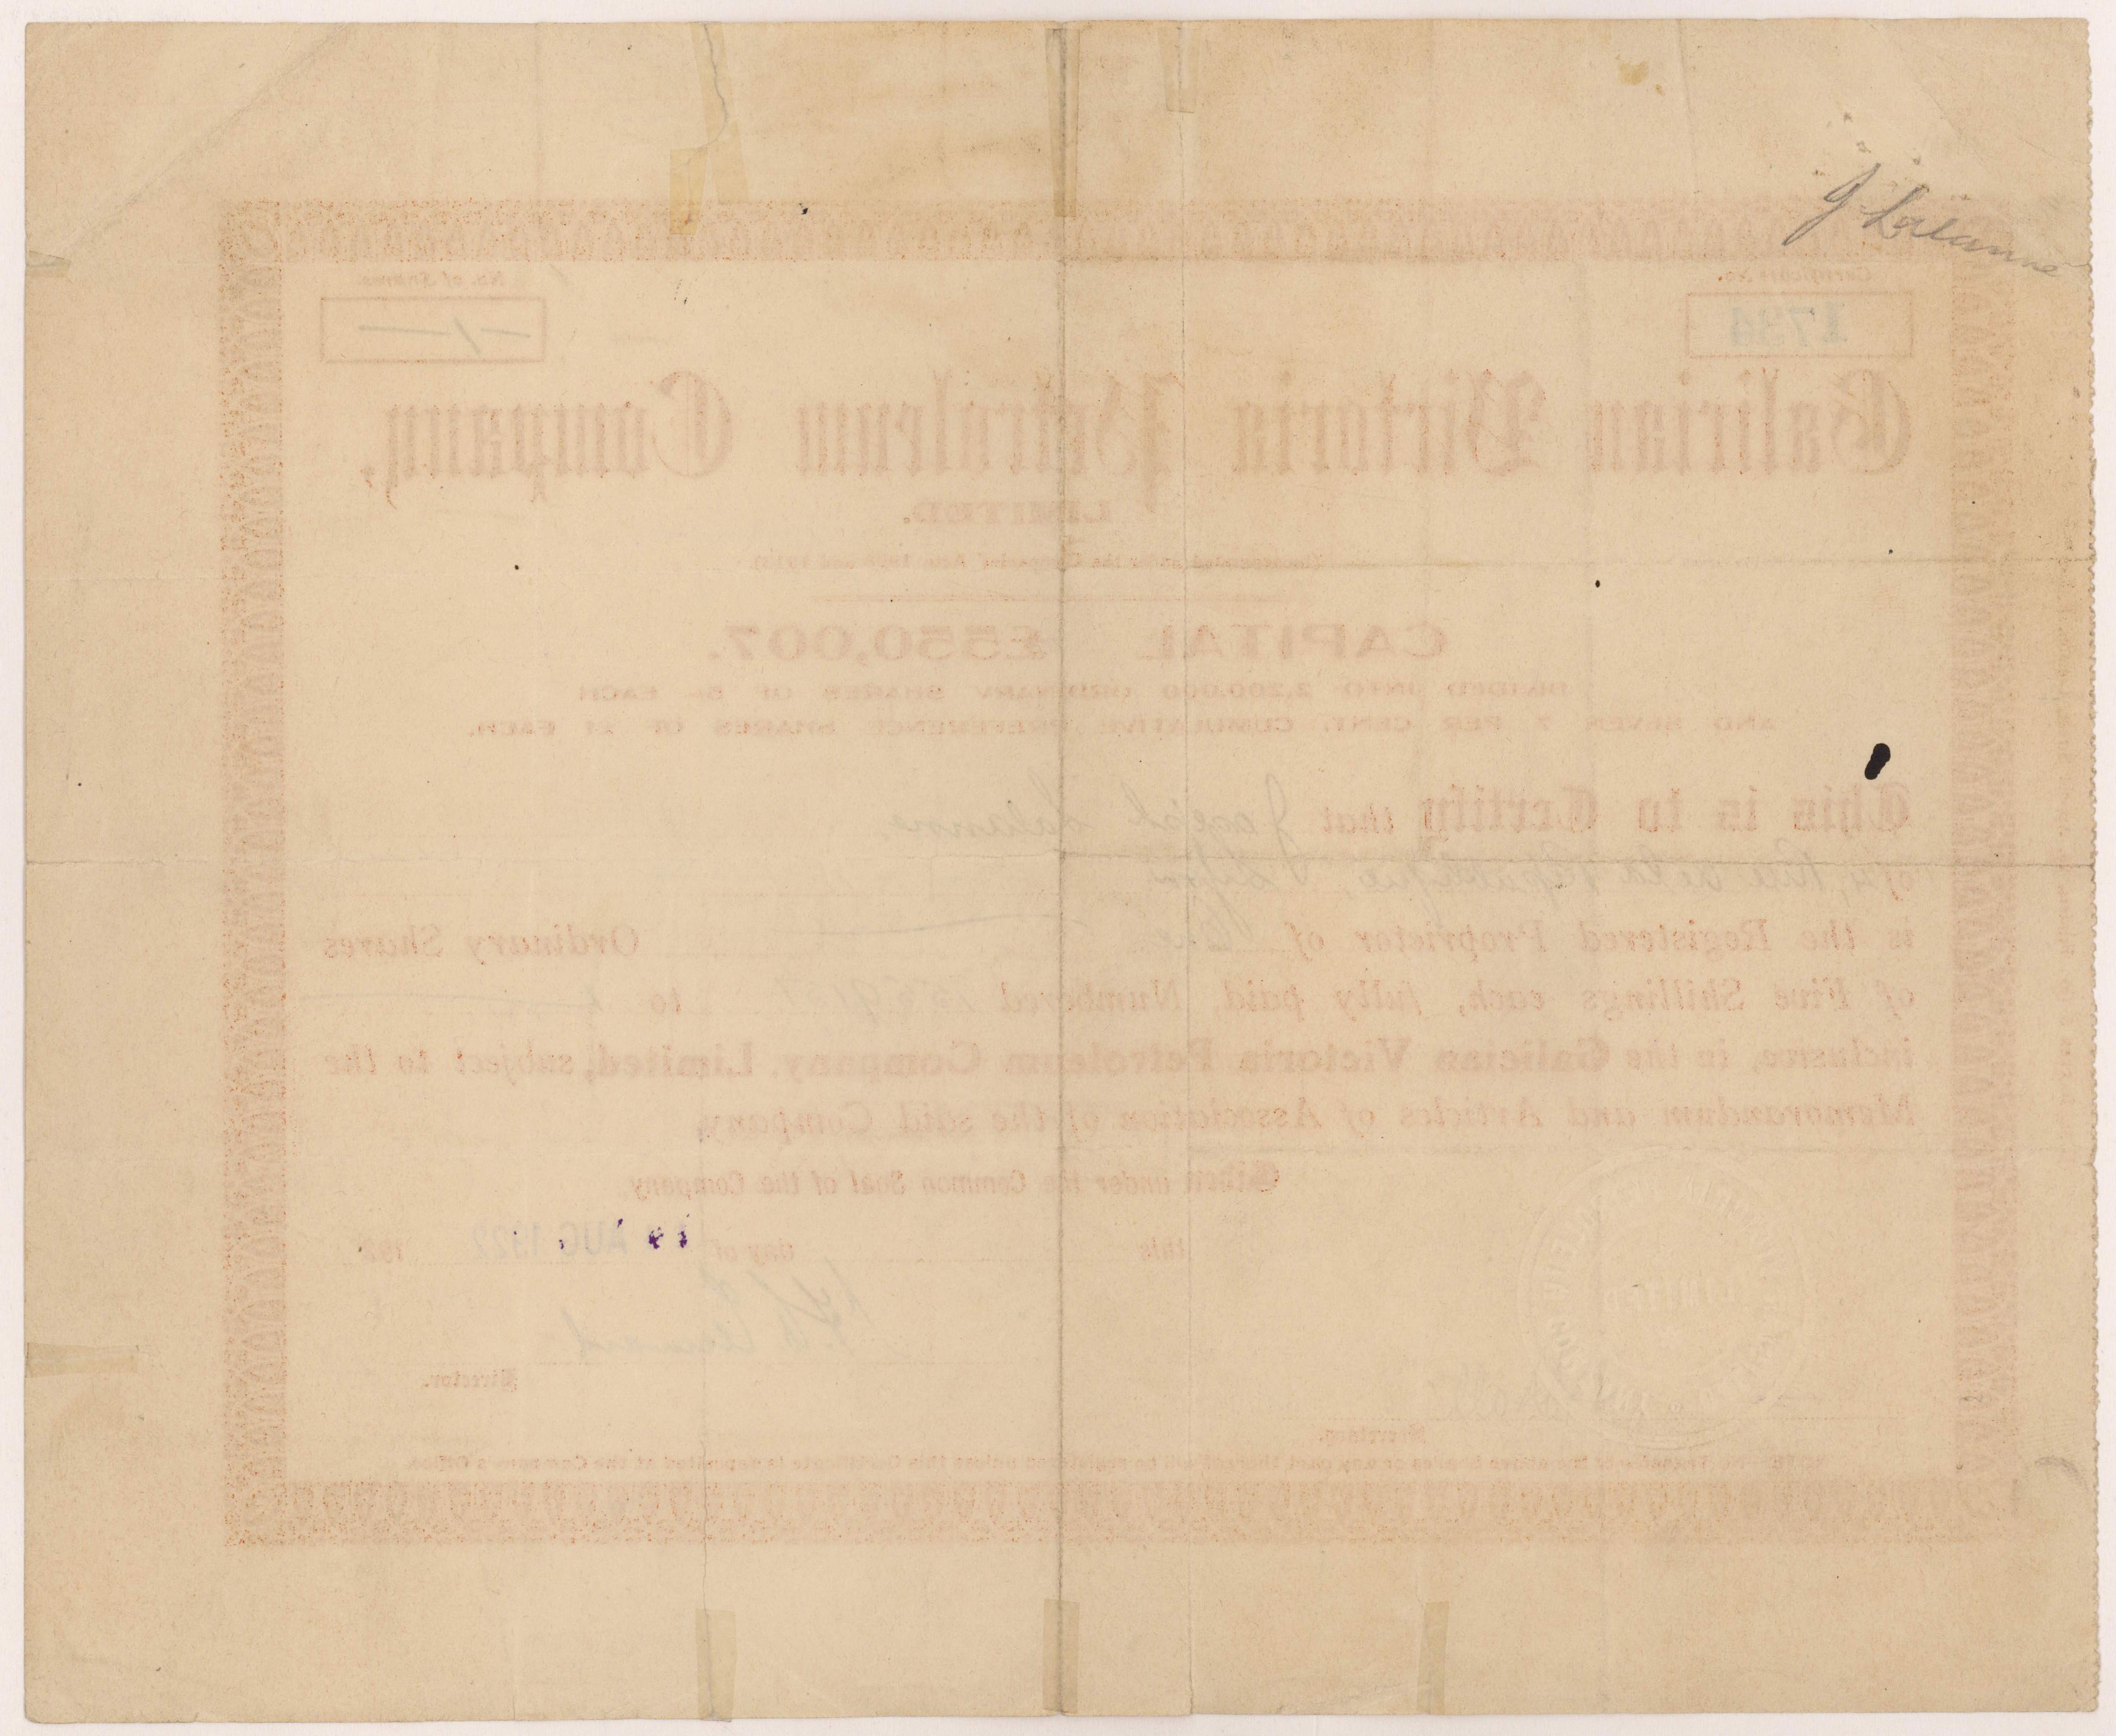 J. Lalanne
Certificate No.
1734
No. of Shares
—1—
Galician Victoria Petroleum Company,
LIMITED.
(Incorporated under the Companies' Acts, 1908 and 1913)
CAPITAL £550,007.
DIVIDED INTO 2,200,000 ORDINARY SHARES OF 5/- EACH
AND SEVEN 7 PER CENT. CUMULATIVE PREFERENCE SHARES OF £1 EACH.
This is to Certify that Joseph Lalanne,
of 4, Rue de la République, Dijon
is the Registered Proprietor of One Ordinary Shares
of Five Shillings each, fully paid, Numbered to
inclusive, in the Galician Victoria Petroleum Company, Limited, subject to the
Memorandum and Articles of Association of the said Company.
Given under the Common Seal of the Company
this day of AUG 1922 192
Director.
LIMITED
Secretary.
NOTE—No Transfer of the above Shares or any part thereof will be registered unless this Certificate is deposited at the Company's Office.